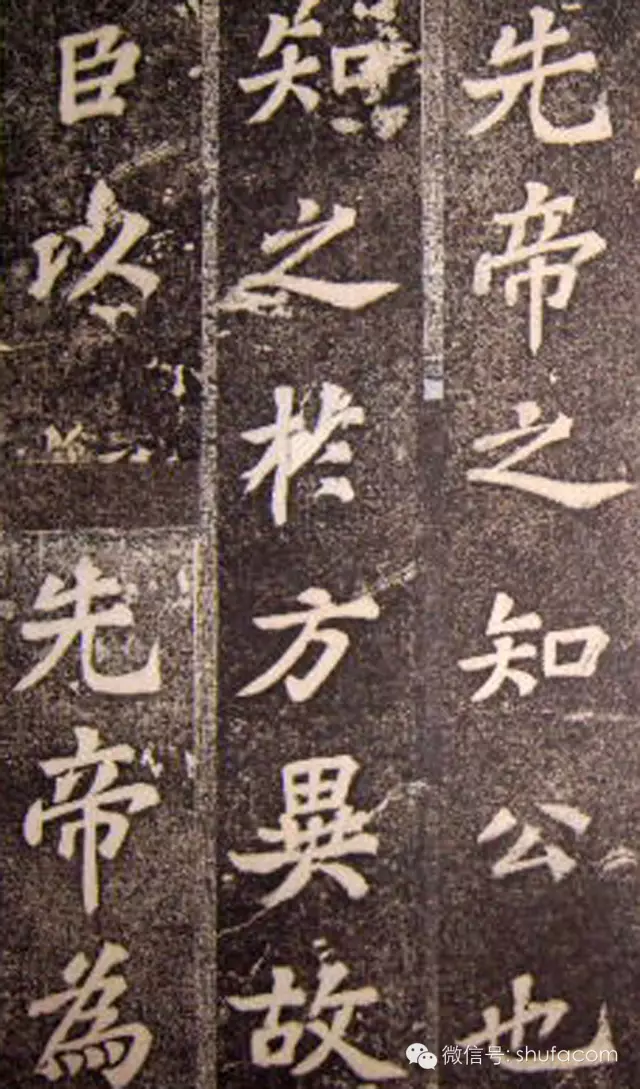 先帝之知公也
知之於方異故
臣以先帝為
微信号: shufacom